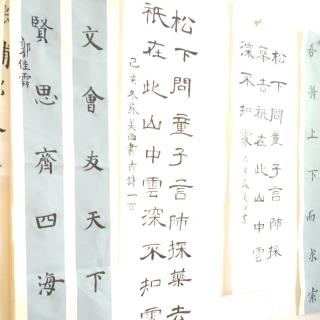 吾將上下而求索
松下問童子言師採
藥去祇在此山中雲
深不知處
松下問童子言師採藥去
祇在此山中雲深不知處
己亥冬蘇美西書古詩一首
文會友天下
賢思齊四海
郭佳霖